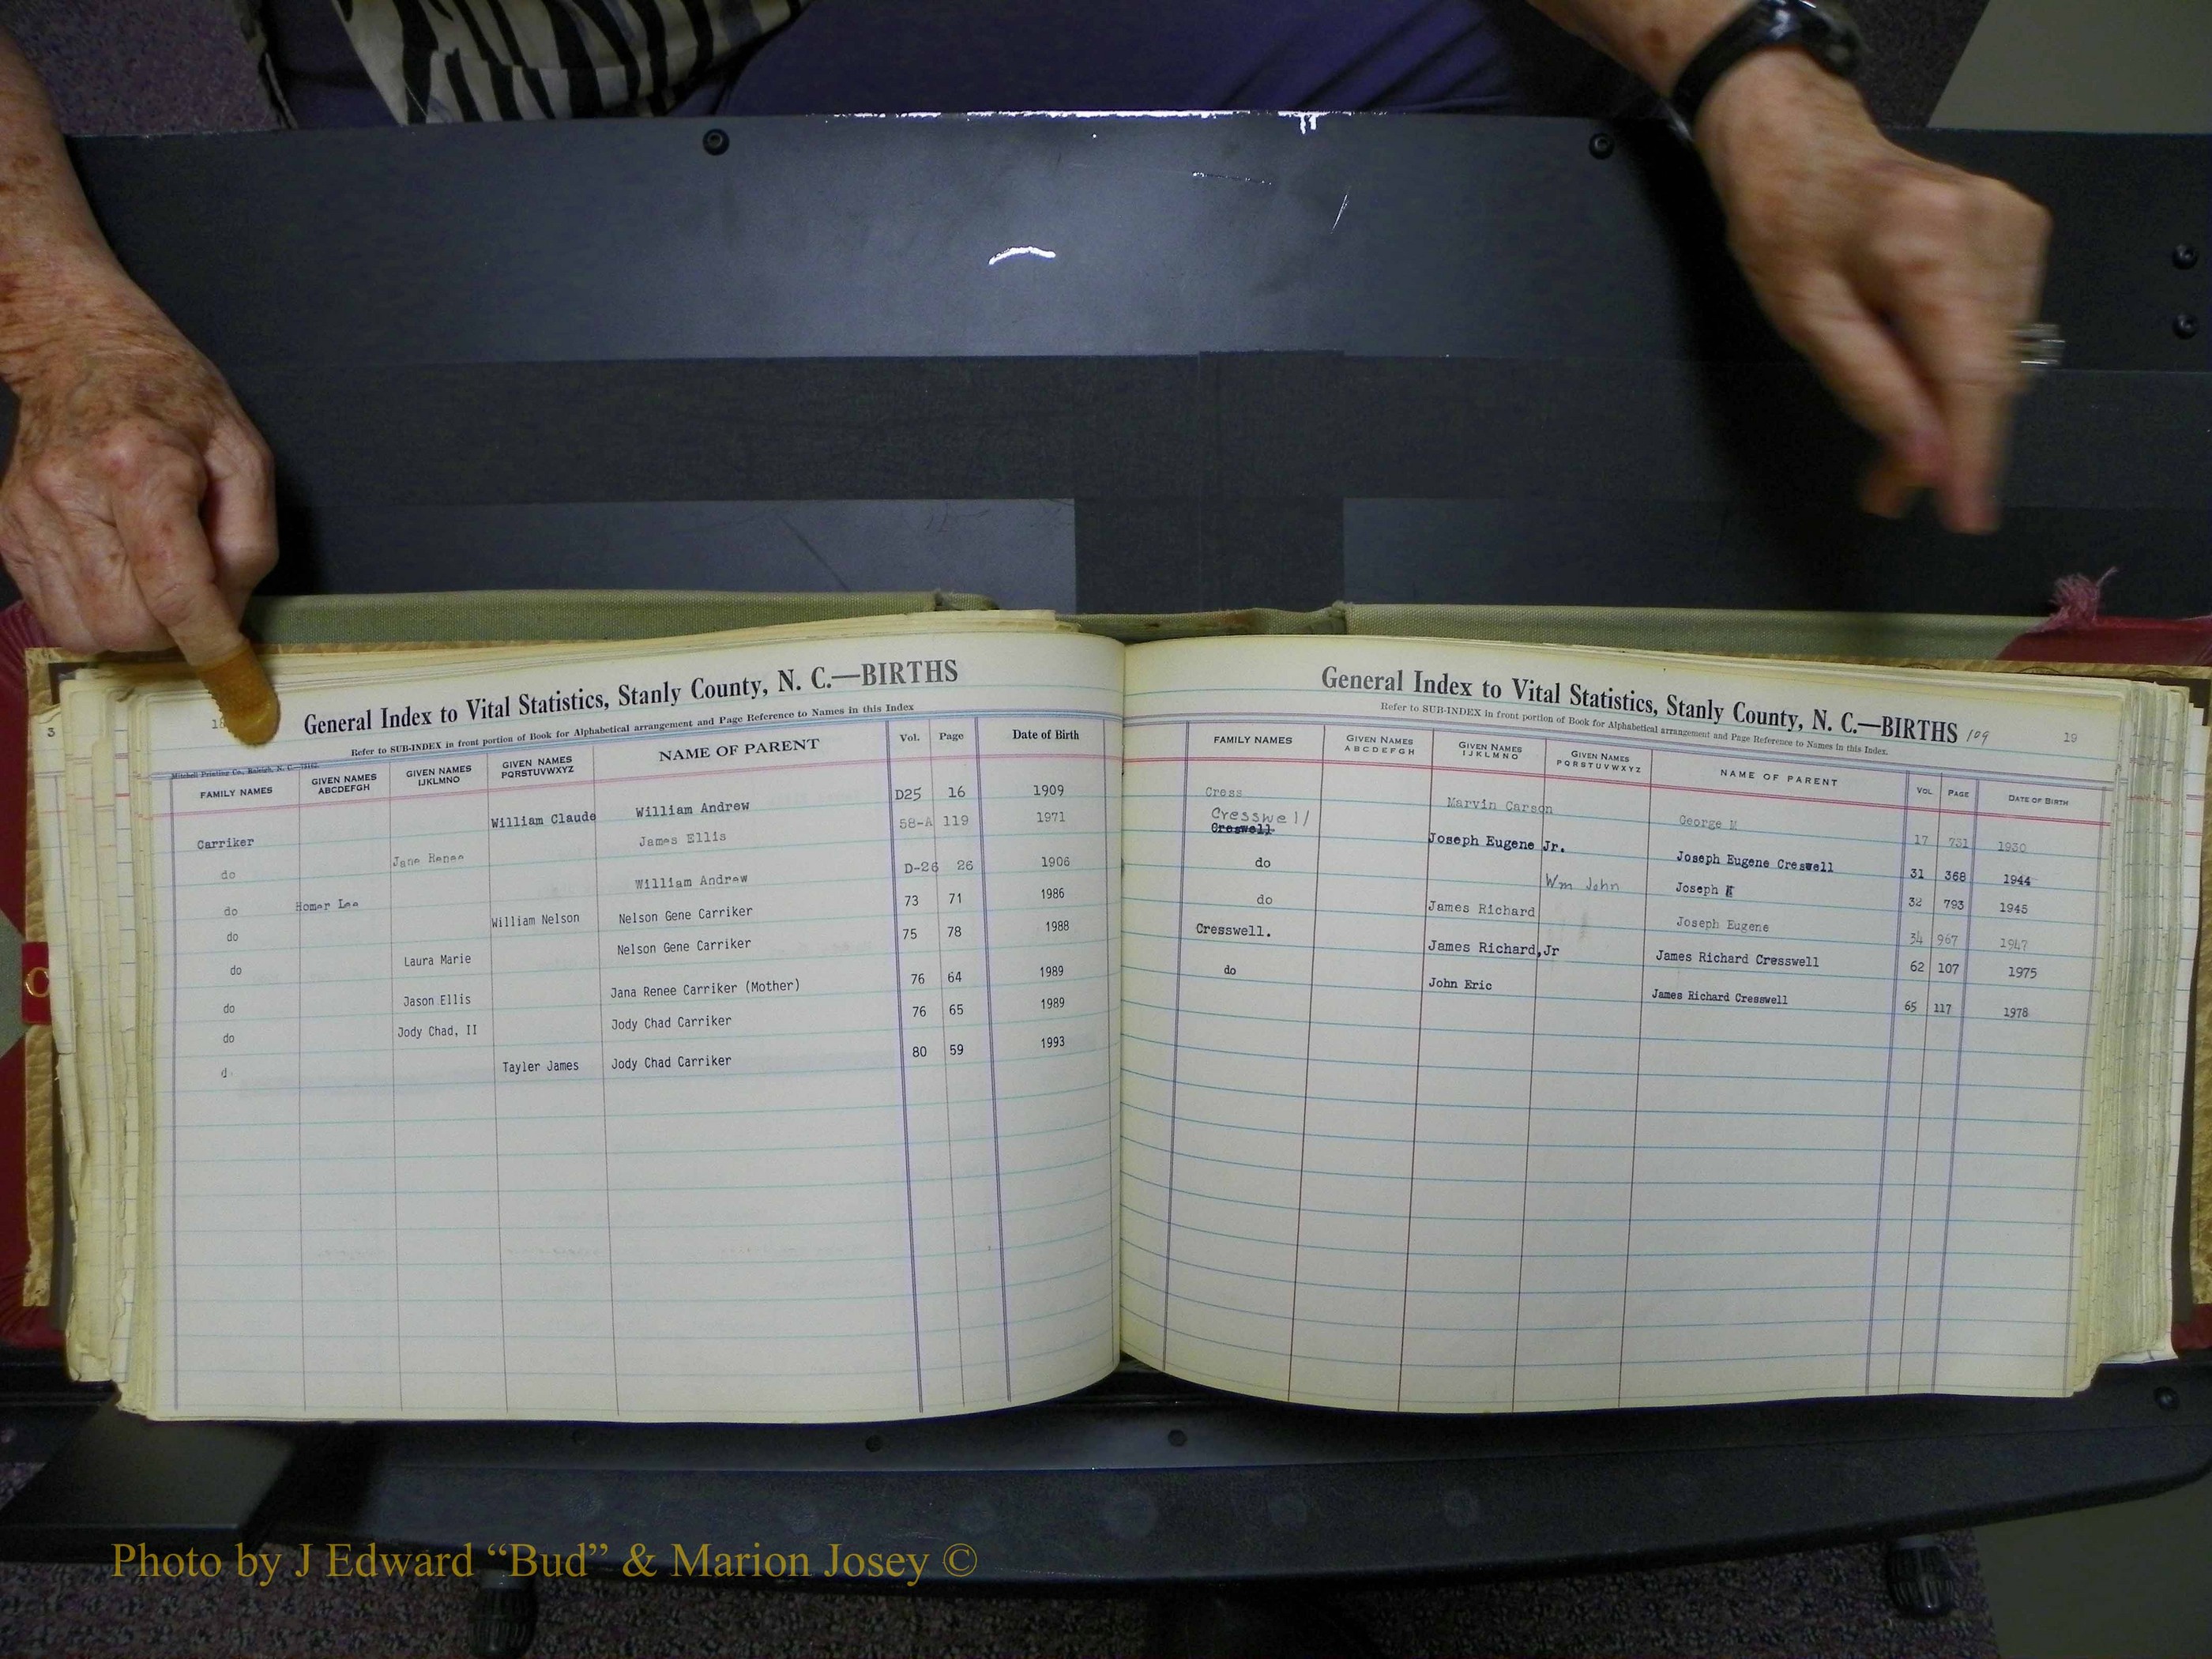 General Index to Vital Statistics, Stanly County, N. C.—BIRTHS
Refer to SUB-INDEX in front portion of Book for Alphabetical arrangement and Page Reference to Names in this Index
Mitchell Printing Co., Raleigh, N. C.
FAMILY NAMES GIVEN NAMES ABCDEFGH GIVEN NAMES IJKLMNO GIVEN NAMES PQRSTUVWXYZ NAME OF PARENT Vol. Page Date of Birth
Carriker William Claude William Andrew D25 16 1909
do Jane Renee James Ellis 58-A 119 1971
do Homer Lee William Andrew D-26 26 1906
do William Nelson Nelson Gene Carriker 73 71 1986
do Laura Marie Nelson Gene Carriker 75 78 1988
do Jason Ellis Jana Renee Carriker (Mother) 76 64 1989
do Jody Chad, II Jody Chad Carriker 76 65 1989
d Tayler James Jody Chad Carriker 80 59 1993
General Index to Vital Statistics, Stanly County, N. C.—BIRTHS 109
19
Refer to SUB-INDEX in front portion of Book for Alphabetical arrangement and Page Reference to Names in this Index.
FAMILY NAMES GIVEN NAMES ABCDEFGH GIVEN NAMES IJKLMNO GIVEN NAMES PQRSTUVWXYZ NAME OF PARENT VOL PAGE DATE OF BIRTH
Cress Marvin Carson George M 17 731 1930
Cresswell
Creswell Joseph Eugene Jr. Joseph Eugene Creswell 31 368 1944
do Wm John Joseph E 32 793 1945
do James Richard Joseph Eugene 34 967 1947
Cresswell. James Richard,Jr James Richard Cresswell 62 107 1975
do John Eric James Richard Cresswell 65 117 1978
Photo by J Edward “Bud” & Marion Josey ©